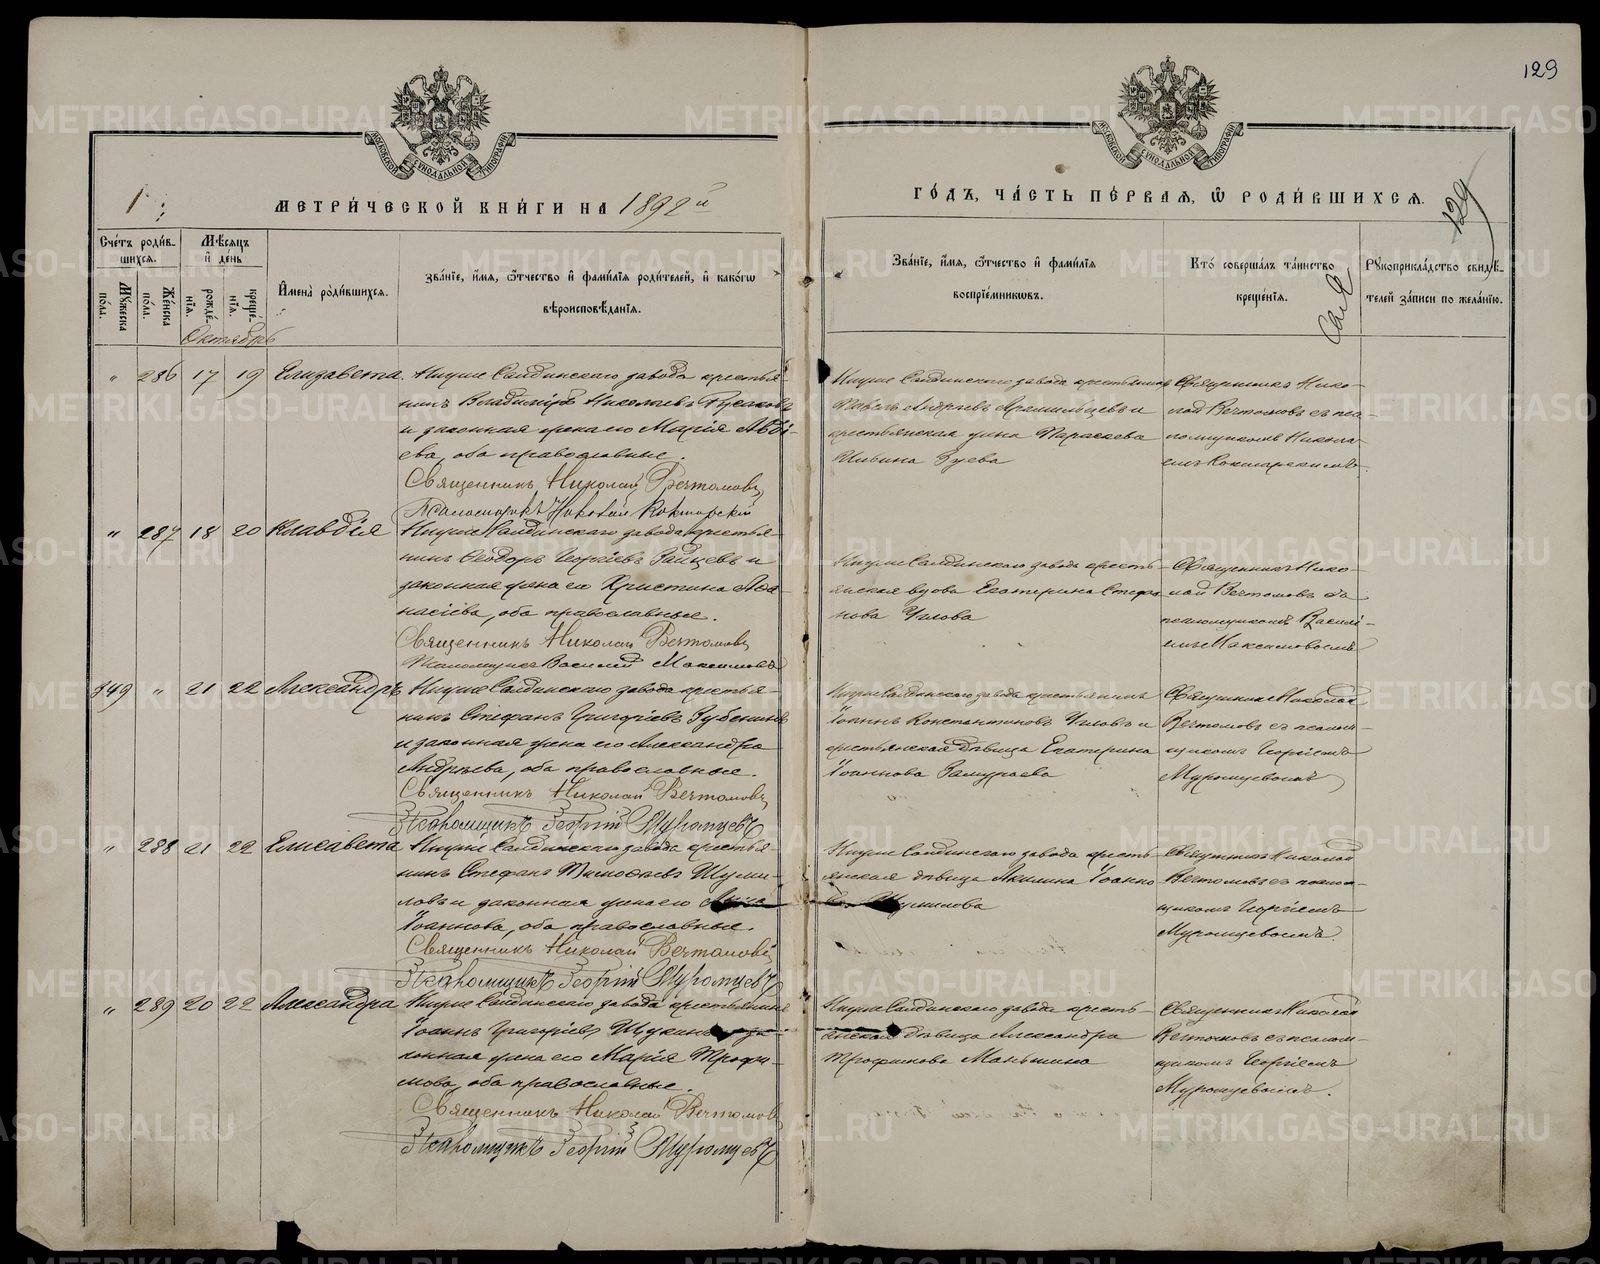 129
МОСКОВСКОЙ СѴНОДАЛЬНОЙ ТИПОГРАФІИ
МОСКОВСКОЙ СѴНОДАЛЬНОЙ ТИПОГРАФІИ
МЕТРИ́ЧЕСКОЙ КНИ́ГИ НА 1892 й
ГО́ДЪ, ЧА́СТЬ ПЕ́РВАЯ, Ѡ РОДИ́ВШИХСЯ.
129
Сче́тъ роди́в-
шихся.
Мꙋжеска
по́ла.
Же́нска
по́ла.
Мѣ́сяцъ
и̂ де́нь
рожде́-
нїя.
креще́-
нїя.
И̂мена̀ роди́вшихся.
Зва́нїе, и̂́мя, ѻ҆́тчество и̂ фами́лїя роди́телей, и̂ како́гѡ
вѣроисповѣ́данїя.
Зва́нїе, и̂́мя, ѻ҆́тчество и̂ фами́лїя
воспрїе́мниковъ.
Кто̀ соверша́лъ та́инство
креще́нїя.
Рꙋкоприкла́дство свидѣ́-
телей за́писи по жела́нїю.
Октябрь
" 286 17 19 Елизавета. Нижне Салдинскаго завода крестья-
нинъ Владиміръ Николаевъ
и законная жена его Марія Авді-
ева, оба православные.
Священникъ Николай Вечтомовъ
Псаломщикъ Николай Кокшарскій
Нижне Салдинскаго завода крестьянинъ
Павелъ Андреевъ и
крестьянская жена Параскева
Гуева
Священникъ Нико-
лай Вечтомовъ съ пса-
ломщикомъ Никола-
емъ Кокшарскимъ.
" 287 18 20 Клавдія Нижне Салдинскаго завода крестья-
нинъ Ѳеодоръ Георгіевъ Зайцевъ и
законная жена его Христина Аѳа-
насіева, оба православные.
Священникъ Николай Вечтомовъ
Псаломщикъ Василій Максимовъ
Нижне Салдинскаго завода кресть-
янская вдова Екатерина Стефа-
нова Углова
Священникъ Нико-
лай Вечтомовъ съ
псаломщикомъ Василі-
емъ Максимовымъ
149 " 21 22 Александръ Нижне Салдинскаго завода крестья-
нинъ Стефанъ Григоріевъ Зубенинъ
и законная жена его Александра
Андреева, оба православные.
Священникъ Николай Вечтомовъ
Псаломщикъ Георгій Муромцевъ
Нижне Салдинскаго завода крестьянинъ
Іоаннъ Константиновъ Угловъ и
крестьянская дѣвица Екатерина
Іоаннова Замураева
Священникъ Николай
Вечтомовъ съ псалом-
щикомъ Георгіемъ
Муромцевымъ
" 288 21 22 Елисавета Нижне Салдинскаго завода крестья-
нинъ Стефанъ Тимоѳеевъ Шуми-
ловъ и законная жена его
Іоаннова, оба православные.
Священникъ Николай Вечтомовъ
Псаломщикъ Георгій Муромцевъ
Нижне Салдинскаго завода кресть-
янская дѣвица Акилина Іоанно-
ва Шумилова
Священникъ Николай
Вечтомовъ съ псалом-
щикомъ Георгіемъ
Муромцевымъ.
" 289 20 22 Александра Нижне Салдинскаго завода крестьянинъ
Іоаннъ Григоріевъ Щукинъ и за-
конная жена его Марія Трофи-
мова, оба православные.
Священникъ Николай Вечтомовъ
Псаломщикъ Георгій Муромцевъ
Нижне Салдинскаго завода кресть-
янская дѣвица Александра
Трофимова Маньшина
Священникъ Николай
Вечтомовъ съ псалом-
щикомъ Георгіемъ
Муромцевымъ.
METRIKI.GASO-URAL.RU